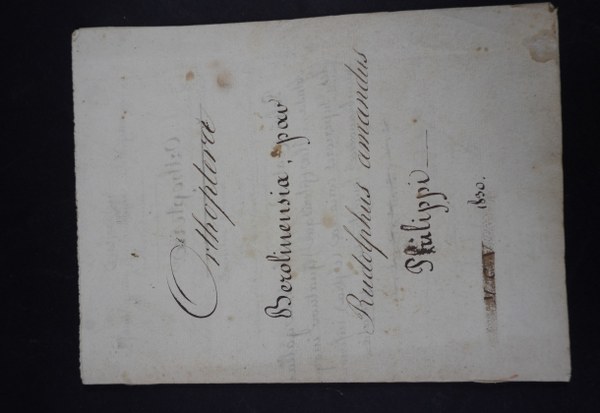 Orthoptera
Berolinensia, par
Rudolphus amandus
Philippi
1830.